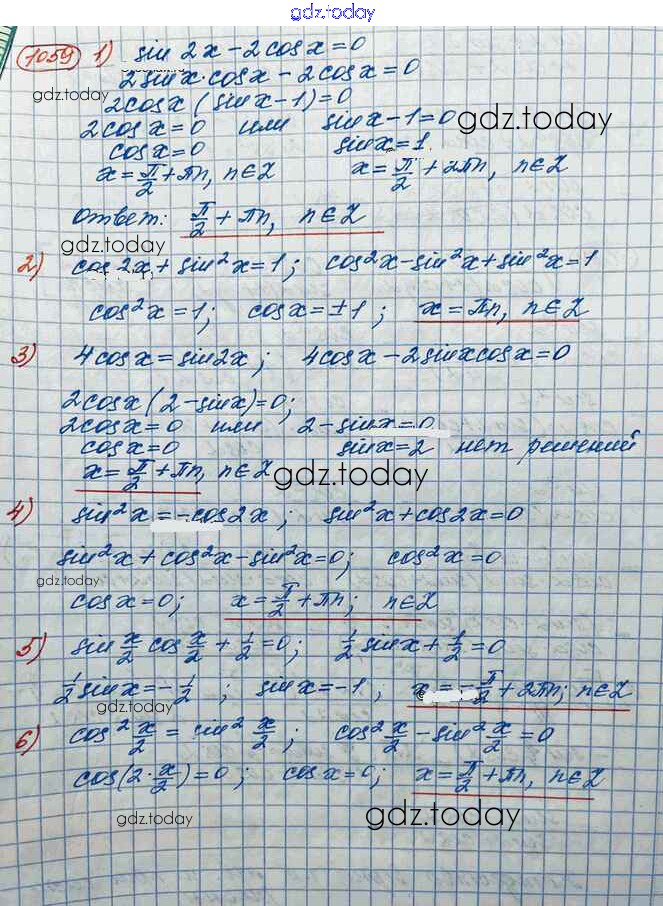 gdz.today
1059 1) sin 2x - 2cosx = 0
2sinx·cosx - 2cosx = 0
gdz.today
2cosx(sinx-1)=0
2cosx=0 или sinx-1=0 gdz.today
cosx=0 sinx=1
x=π/2+πn, n∈Z x=π/2+2πn, n∈Z
Ответ: π/2+πn, n∈Z
gdz.today
2) cos2x+sin²x=1; cos²x-sin²x+sin²x=1
cos²x=1; cosx=±1; x=πn, n∈Z
3) 4cosx=sin2x; 4cosx-2sinxcosx=0
2cosx(2-sinx)=0;
2cosx=0 или 2-sinx=0
cosx=0 sinx=2 нет решений
x=π/2+πn, n∈Z gdz.today
4) sin²x=-cos2x; sin²x+cos2x=0
sin²x+cos²x-sin²x=0; cos²x=0
gdz.today
cosx=0; x=π/2+πn; n∈Z
5) sin x/2 cos x/2 + 1/2=0; 1/2 sinx+1/2=0
1/2 sinx=-1/2; sinx=-1, x=-π/2+2πn; n∈Z
gdz.today
6) cos² x/2 = sin² x/2; cos² x/2 - sin² x/2=0
cos(2·x/2)=0; cosx=0; x=π/2+πn, n∈Z
gdz.today gdz.today